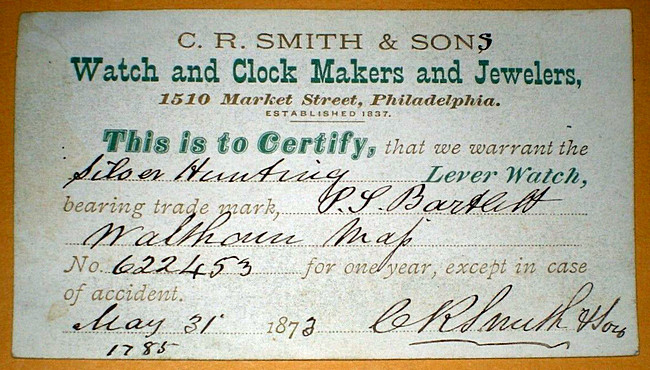 C. R. SMITH & SONS
Watch and Clock Makers and Jewelers,
1510 Market Street, Philadelphia.
ESTABLISHED 1837.
This is to Certify, that we warrant the
Silver Hunting Lever Watch,
bearing trade mark, P. S. Bartlett
Waltham Mass
No. 622453 for one year, except in case
of accident.
May 31 1873 C R Smith & Son
1785